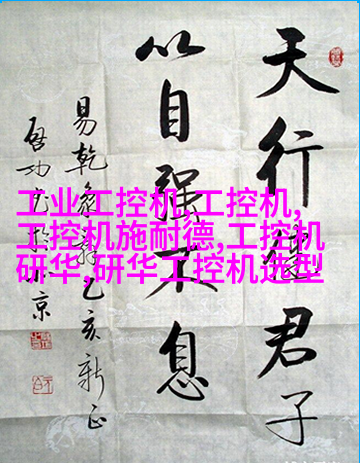 天行健君子
以自强不息
易乾象辞乙亥新正
啓功书於北京
工业工控机,工控机,
工控机施耐德,工控机
研华,研华工控机选型